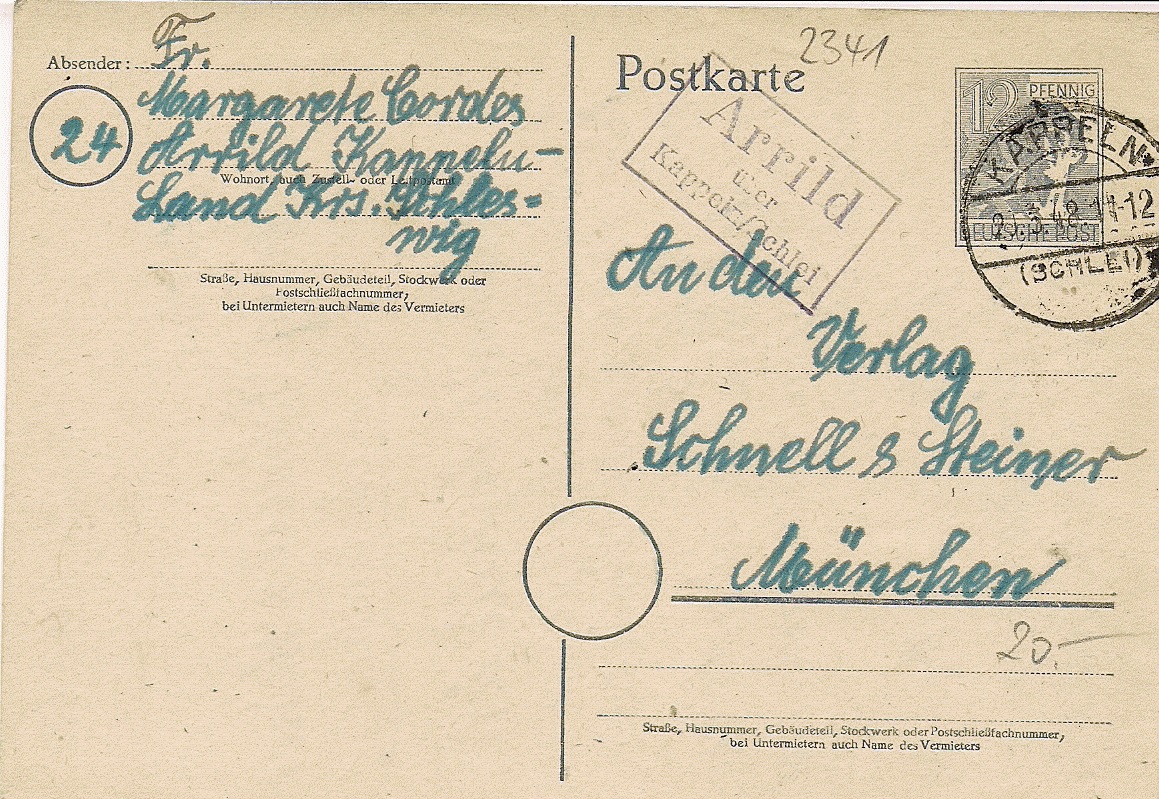 Absender: Fr.
Margarete Cordes
24
Arrild Kappeln-
Wohnort, auch Zustell- oder Leitpostamt
Land Krs. Schles-
wig
Straße, Hausnummer, Gebäudeteil, Stockwerk oder
Postschließfachnummer;
bei Untermietern auch Name des Vermieters
2341
Postkarte
Arrild
über
Kappeln/Schlei
12 PFENNIG
DEUTSCHE POST
KAPPELN
3.48.11-12
(SCHLEI)
An den
Verlag
Schnell & Steiner
München
20.-
Straße, Hausnummer, Gebäudeteil, Stockwerk oder Postschließfachnummer;
bei Untermietern auch Name des Vermieters